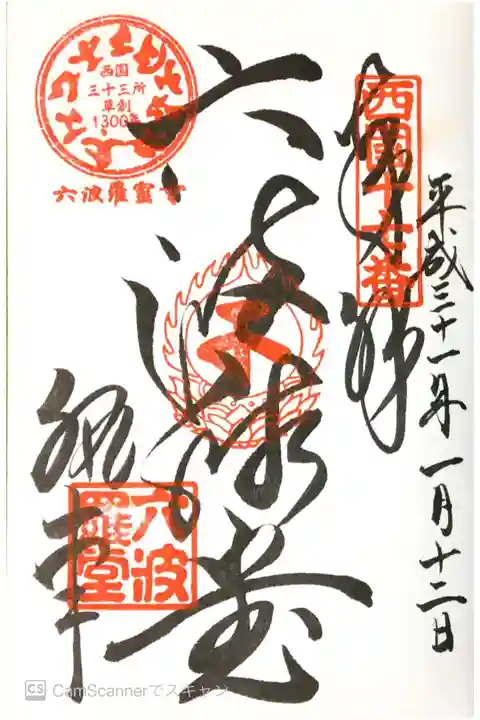 平成三十一年一月十二日
奉拝
西国十七番
六波羅堂
西国
三十三所
草創
1300年
六波羅蜜寺
執事
六波
羅堂
CS CamScannerでスキャン